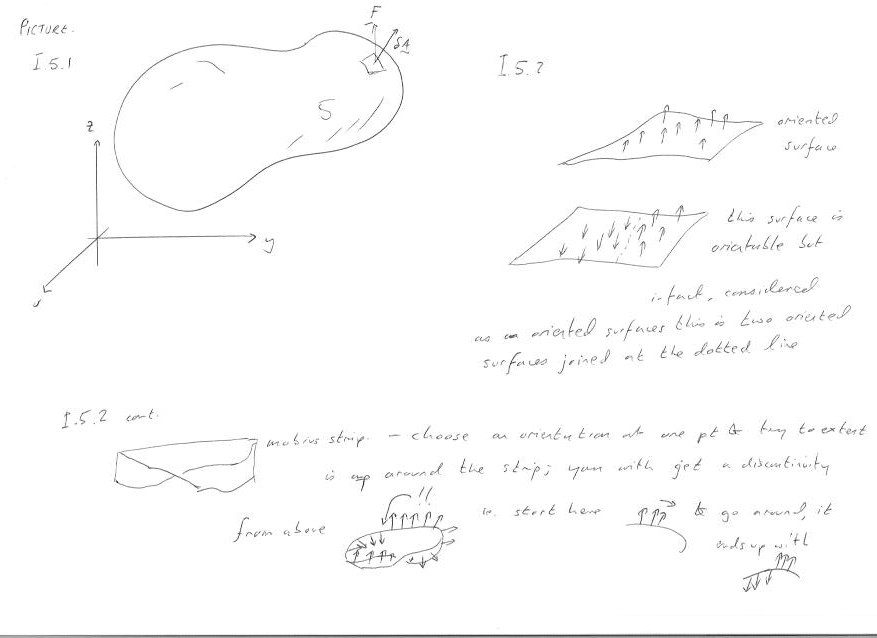 PICTURE.
I.5.1
F
δA
S
z
y
x
I.5.2
oriented
surface
this surface is
orientable but
in fact, considered
as an oriented surfaces this is two oriented
surfaces joined at the dotted line
I.5.2 cont.
mobius strip. – choose an orientation at one pt & try to extent
is around the strip; you with get a discontinuity
from above
!!
i.e. start here
& go around, it
ends up with